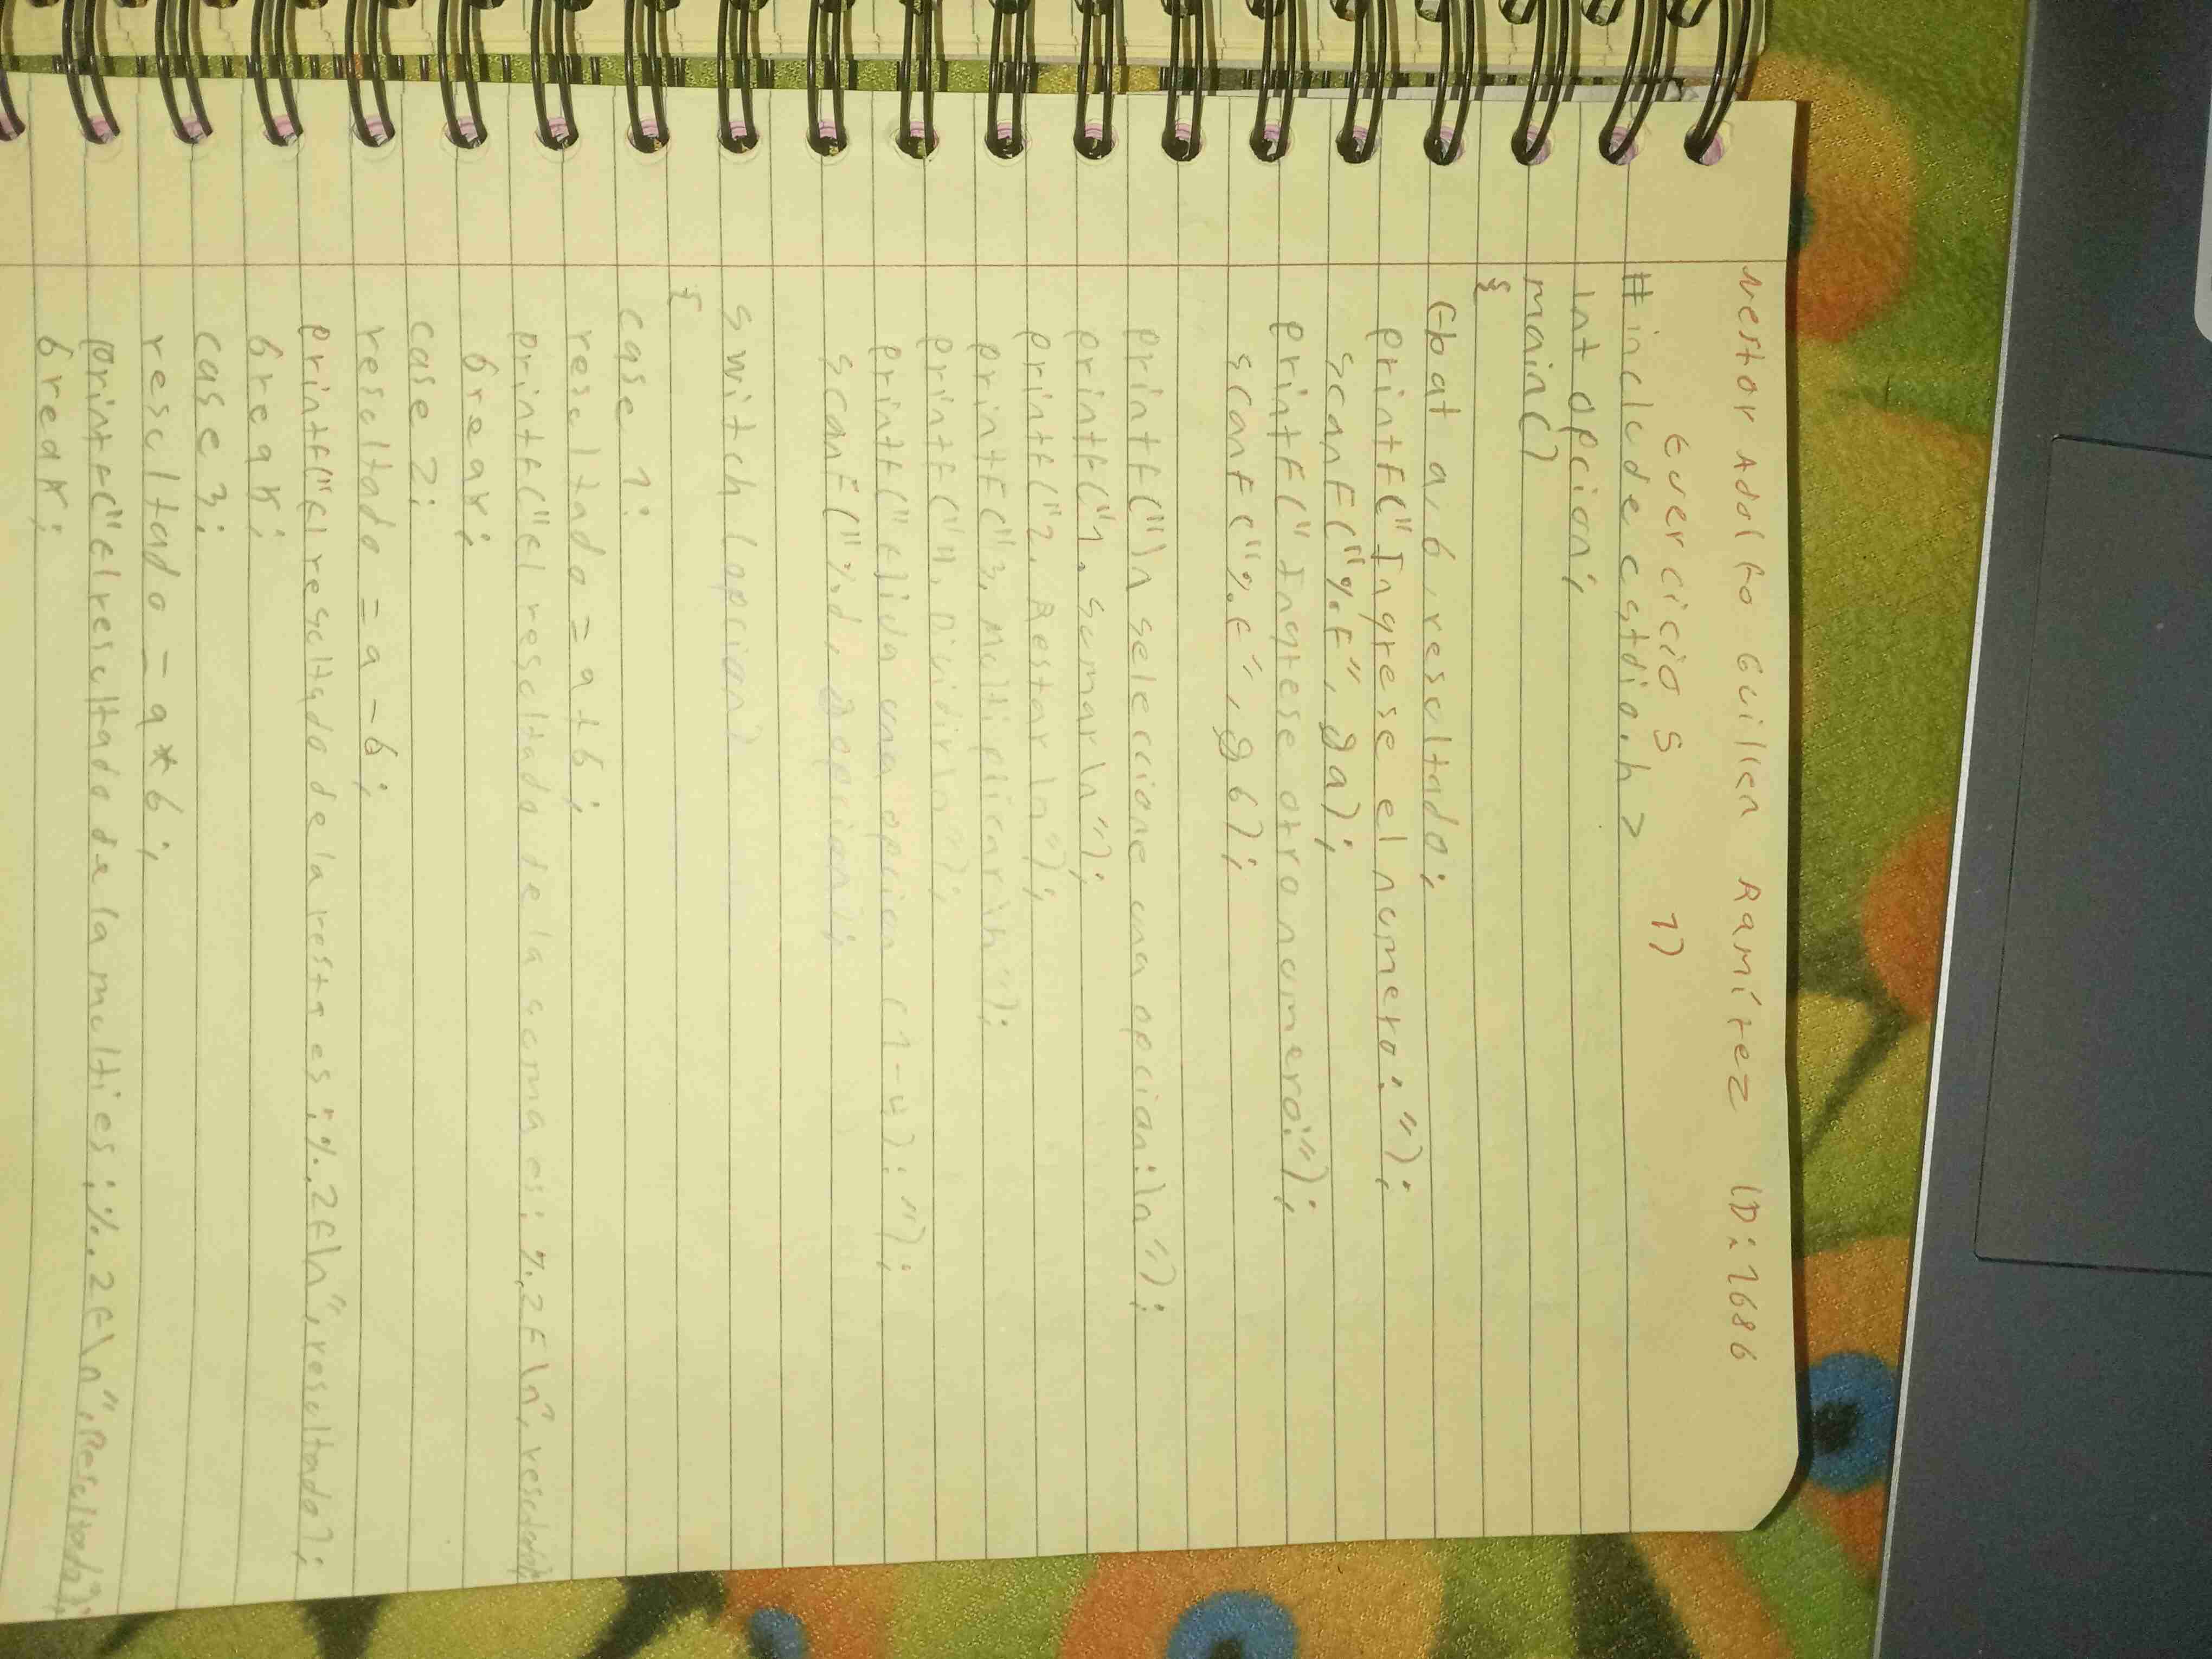 Nestor Adolfo Guillen Ramírez ID: 1686
Ejercicio 5 1)
#include <stdio.h>
int opcion;
main()
{
float a, b, resultado;
printf("Ingrese el numero: ");
scanf("%f", &a);
printf("Ingrese otro numero:");
scanf("%f", &b);
printf("\n seleccione una opcion:\n");
printf("1. sumar\n");
printf("2. Restar\n");
printf("3. Multiplicar\n");
printf("4. Dividir\n");
printf("elija una opcion (1-4): ");
scanf("%d, &opcion);
switch (opcion)
{
case 1:
resultado = a + b;
printf("el resultado de la soma es: %.2f\n", resultado);
break;
case 2:
resultado = a - b;
printf("el resultado de la resta es: %.2f\n", resultado);
break;
case 3:
resultado = a * b;
printf("el resultado de la multi es: %.2f\n", Resultado);
break;